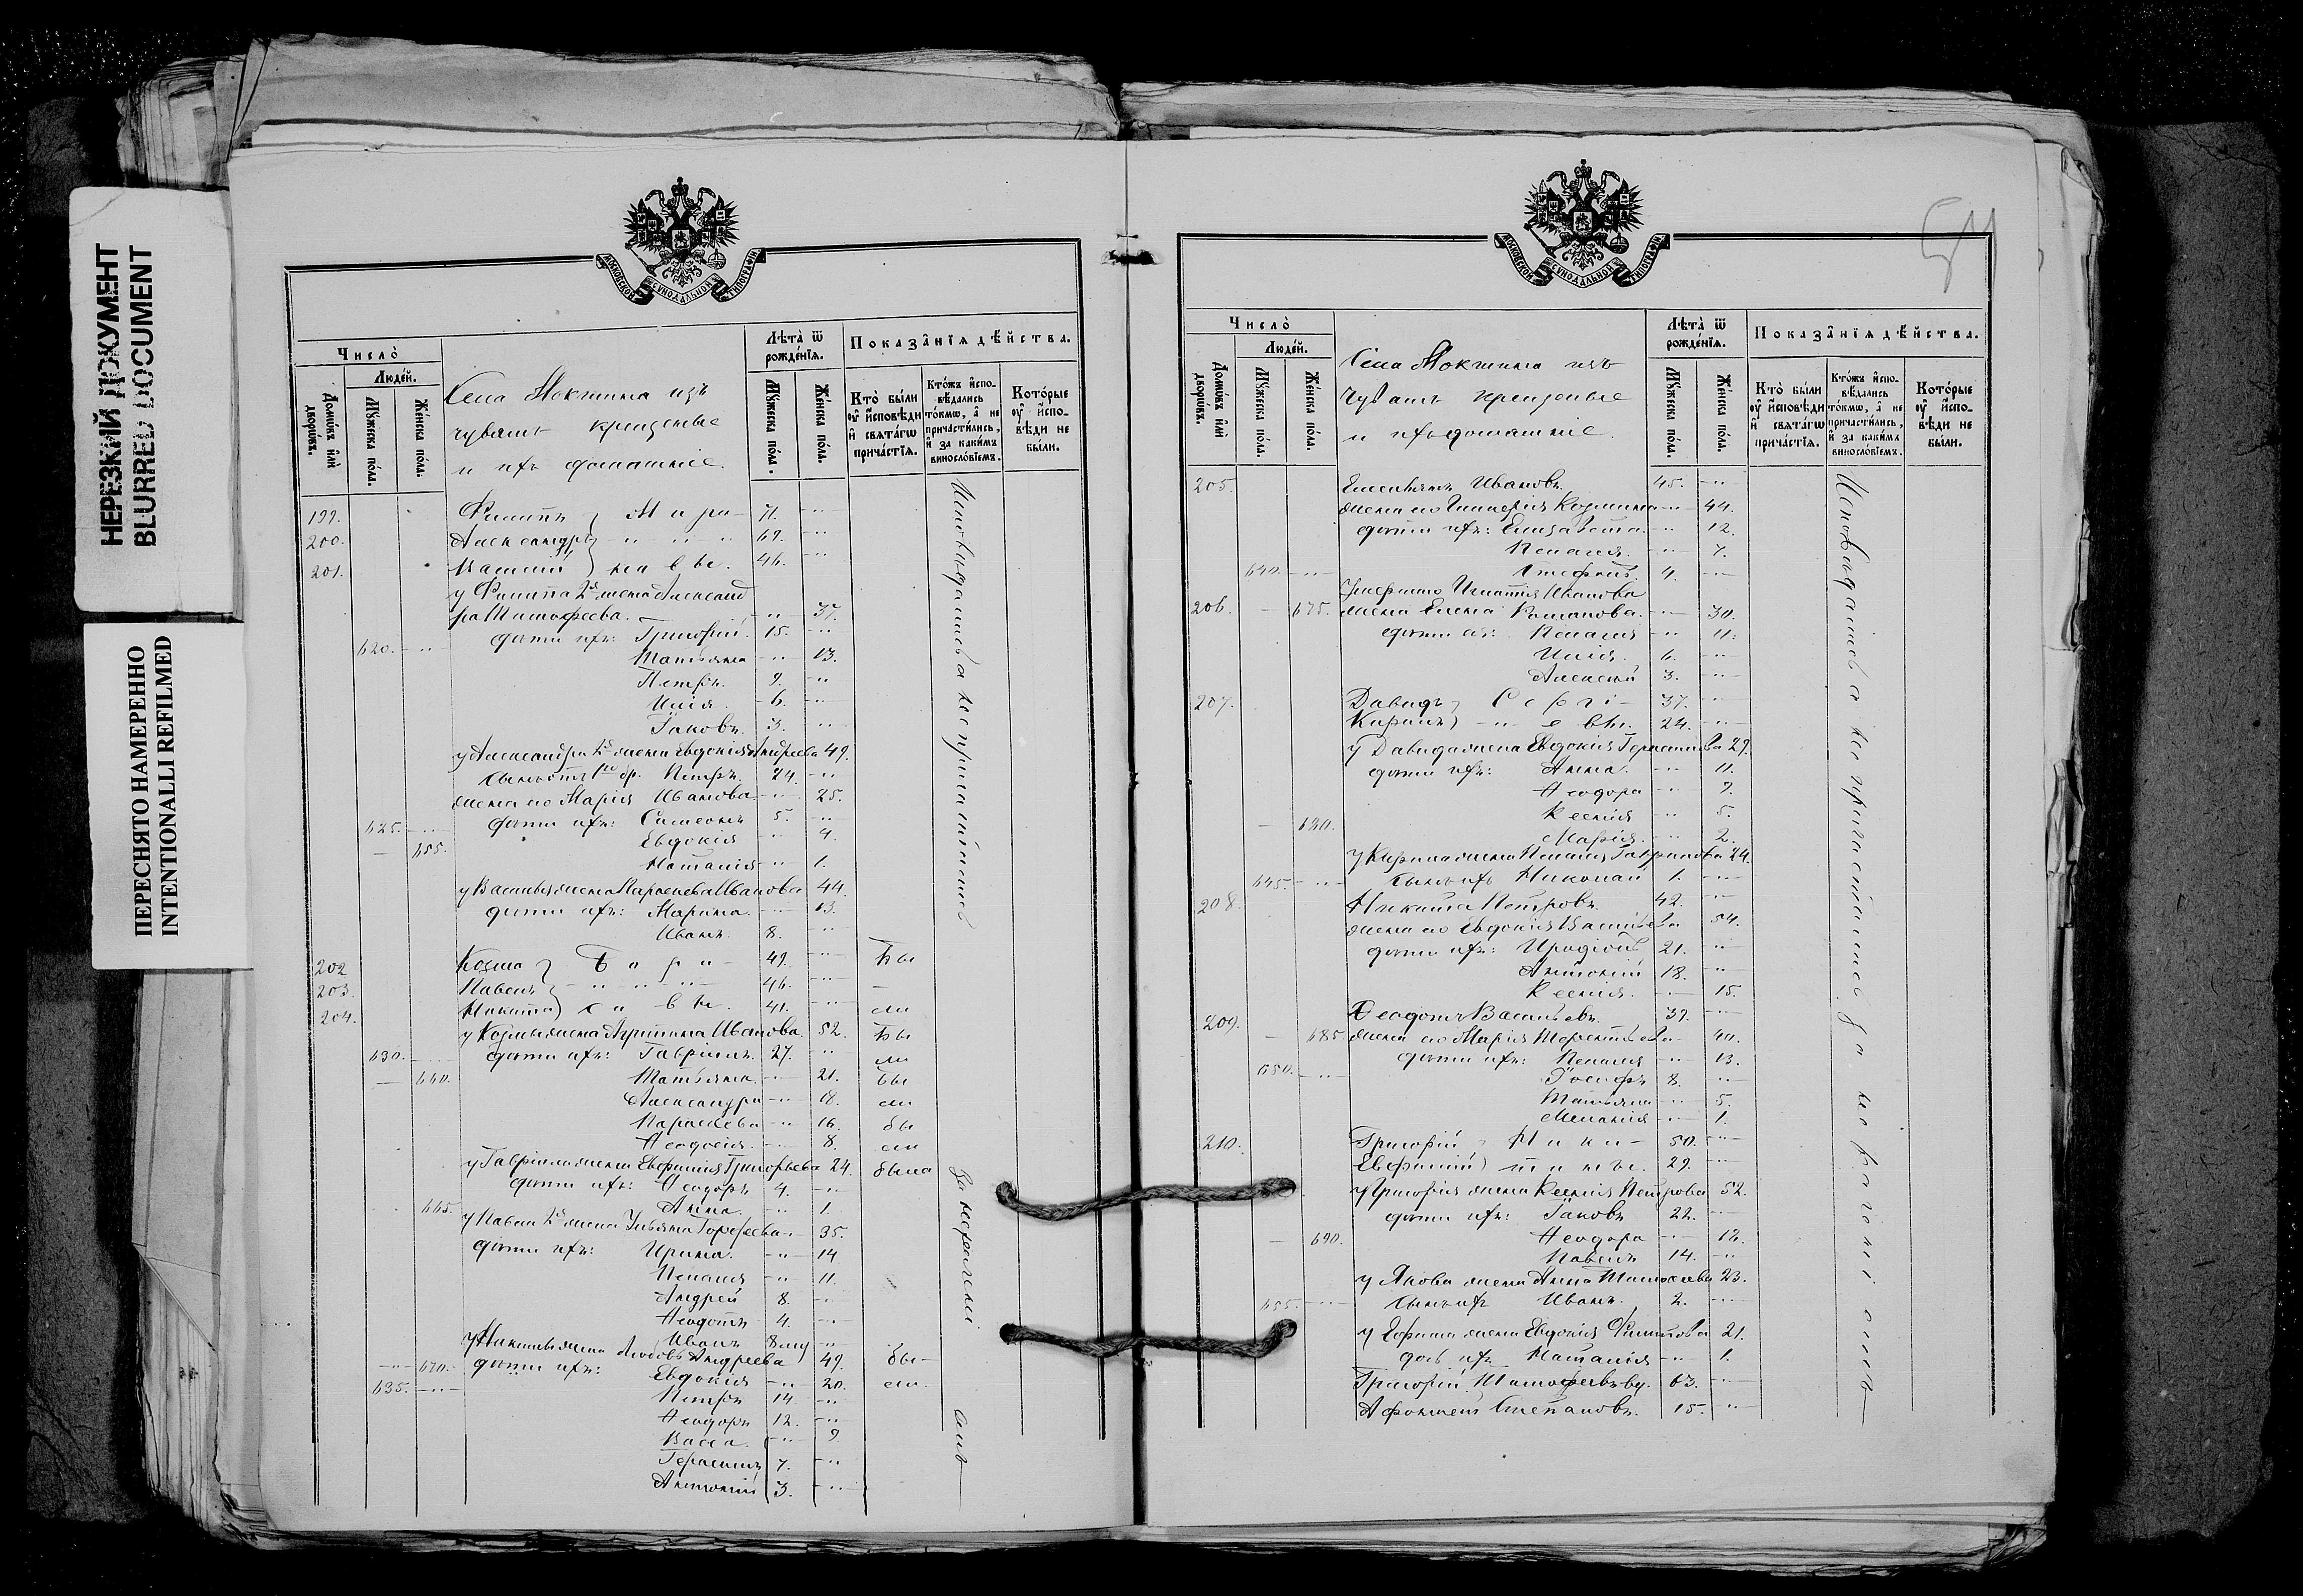 НЕРЕЗКИЙ ДОКУМЕНТ
BLURRED DOCUMENT
ПЕРЕСНЯТО НАМЕРЕННО
INTENTIONALLI REFILMED
МОСКОВСКОЙ СѴНОДАЛЬНОЙ ТИПОГРАФІИ
Число̀
Людéй.
Домѡ́въ и҆лѝ дворѡ́въ.
Мꙋ́жеска по́ла.
Же́нска по́ла.
Села Мокшина изъ
чувашъ крещеные
и ихъ домашніе.
Лѣта̀ ѿ рожде́нїѧ.
Мꙋ́жеска по́ла.
Же́нска по́ла.
Показа̑нїѧ дѣ́йства.
Кто̀ бы́ли ᲂу҆ и҆сповѣди и҆ свѧта́гѡ прича́стїѧ.
Кто́жъ и҆спо-вѣдались то́кмѡ, а҆ не причасти́лись, и҆ за каки́мъ винослóвїемъ.
Кото́рые ᲂу҆ и҆спо-вѣди не бы́ли.
199. Филиппъ } Миро- 71. -"-
200. Александръ } " " " 69. -"-
201. Василій } новы. 46. -"-
у Филиппа 2я жена Александ
ра Тимофеева. -"- 37.
620. -"- дѣти ихъ: Григорій. 15. -"-
Татьяна -"- 13.
Петръ. 9. -"-
Илія. 6. -"-
Іаковъ. 3. -"-
у Александра 2я жена Евдокія Андреева 49.
сынъ отъ 1го бр. Петръ. 24. -"-
жена его Марія Иванова -"- 25.
625. -"- дѣти ихъ: Симеонъ 5. -"-
- 655. Евдокія -"- 4.
Наталія -"- 1.
у Василья жена Параскева Иванова 44.
дѣти ихъ: Марина. -"- 13.
Иванъ. 8. -"-
202 Козма } Бара- 49. -"- Бы
203. Павелъ } -"- " "- 46. -"- -
204. Никита } ховы. 41. -"- ли
у Козмы жена Агрипина Иванова. 52. Бы
630. -"- дѣти ихъ: Гавріилъ. 27. -"- ли
- 660. Татьяна. -"- 21. бы
Александра -"- 18. ли
Параскева -"- 16. бы
Ѳеодосія. -"- 8. ли
у Гавріила жена Евфимія Григорьева 24. была
дѣти ихъ: Ѳеодоръ 4. -"-
665. Анна. -"- 1.
у Павла 2я жена Ульяна Гордѣева. 35.
дѣти ихъ: Ирина. -"- 14
Пелагія -"- 11.
Андрей 8. -"-
Ѳеодотъ 4. -"-
Иванъ -"-
у Никиты жена Любовь Андреева 49. бы-
-"- 670. дѣти ихъ: Евдокія -"- 20. ли.
635. -"- Петръ 14 -"-
Ѳеодоръ 12. -"-
Васса. -"- 9
Герасимъ 7. -"-
Антоній 3. -"-
Исповѣдались а не причастились за нераченіемъ
Число̀
Людéй.
Домѡ́въ и҆лѝ дворѡ́въ.
Мꙋ́жеска по́ла.
Же́нска по́ла.
Села Мокшина изъ
чувашъ крещеные
и ихъ домашніе.
Лѣта̀ ѿ рожде́нїѧ.
Мꙋ́жеска по́ла.
Же́нска по́ла.
Показа̑нїѧ дѣ́йства.
Кто̀ бы́ли ᲂу҆ и҆сповѣди и҆ свѧта́гѡ прича́стїѧ.
Кто́жъ и҆спо-вѣдались то́кмѡ, а҆ не причасти́лись, и҆ за каки́мъ винослóвїемъ.
Кото́рые ᲂу҆ и҆спо-вѣди не бы́ли.
205. Емельянъ Ивановъ 45. -"-
жена его Гликерія Козмина -"- 44.
дѣти ихъ: Елизавета. -"- 12.
Пелагія. -"- 7.
640. -"- Стефанъ. 4. -"-
Игнатія Иванова
206. - 675. жена Елена Романова. -"- 30.
дѣти ея: Пелагія -"- 11.
Илія. 6. -"-
Алексій 3. -"-
207. Давидъ } Серге- 37. -"-
Кирилъ } -"- евы. 24. -"-
у Давида жена Евдокія Герасимова 29.
дѣти ихъ: Анна. -"- 11.
Ѳеодора -"- 9.
- 680. Ксенія -"- 5.
Марія. -"- 2.
у Кирила жена Пелагія Гаврилова 24.
645. -"- сынъ ихъ Николай 1. -"-
208. Никита Петровъ. 42. -"-
жена его Евдокія Васильева 54.
дѣти ихъ: Иродіонъ 21. -"-
Антоній 18. -"-
Ксенія. -"- 15.
209. Ѳеодотъ Васильевъ. 39. -"-
- 685 жена его Марія Терентьева- 40.
дѣти ихъ: Пелагія -"- 13.
650. -"- Іосифъ 8. -"-
Татьяна -"- 5.
Меланія -"- 1.
210. Григорій } Ники- 50. -"-
Евфимій } тины. 29. -"-
у Григорія жена Ксенія Петрова 52.
дѣти ихъ: Іаковъ 22. -"-
- 690. Ѳеодора -"- 18.
Павелъ 14. -"-
у Якова жена Анна Тимофеева 23.
655. -"- сынъ ихъ Иванъ. 2. -"-
у Ефима жена Евдокія Филипова 21.
дочь ихъ Наталія -"- 1.
Григорій Тимофеевъ вд. 63. -"-
Афонасій Степановъ. 15. -"-
Исповѣдались а не причастились за нераченіемъ